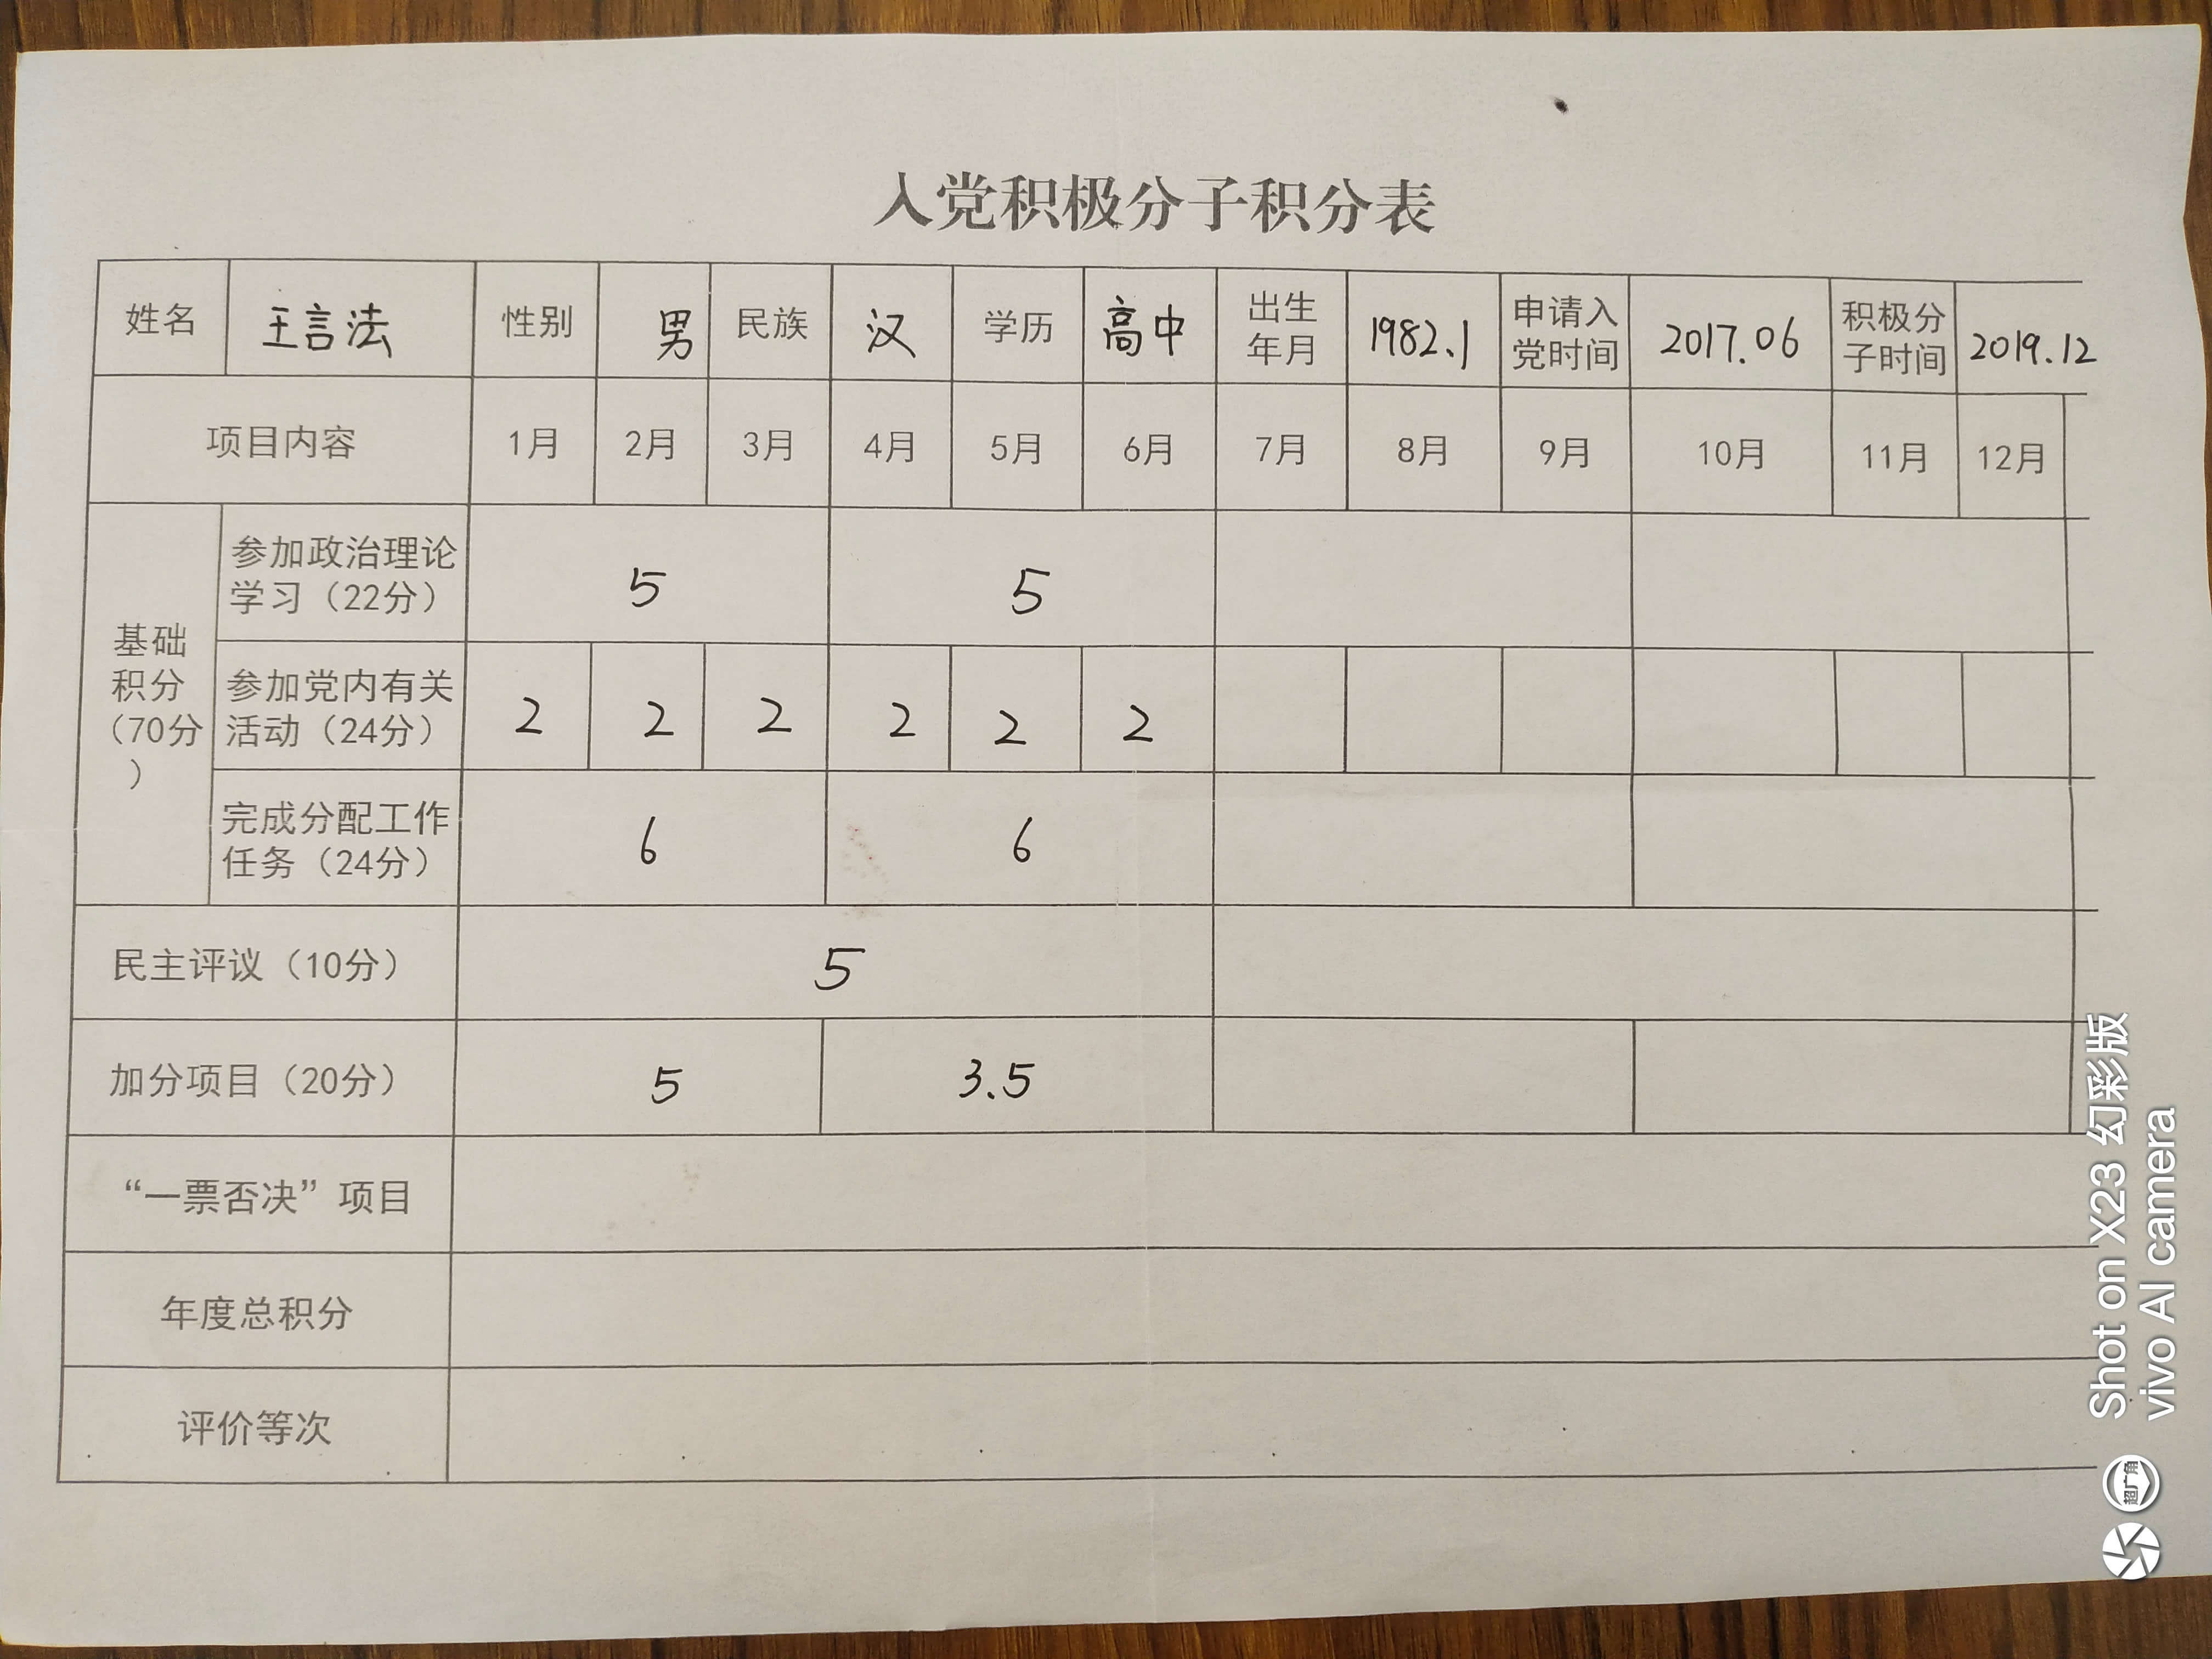 入党积极分子积分表
姓名 王言法 性别 男 民族 汉 学历 高中 出生年月 1982.1 申请入党时间 2017.06 积极分子时间 2019.12
项目内容 1月 2月 3月 4月 5月 6月 7月 8月 9月 10月 11月 12月
基础积分（70分）
参加政治理论学习（22分） 5 5
参加党内有关活动（24分） 2 2 2 2 2 2
完成分配工作任务（24分） 6 6
民主评议（10分） 5
加分项目（20分） 5 3.5
“一票否决”项目
年度总积分
评价等次
Shot on X23 幻彩版
vivo AI camera
超广角